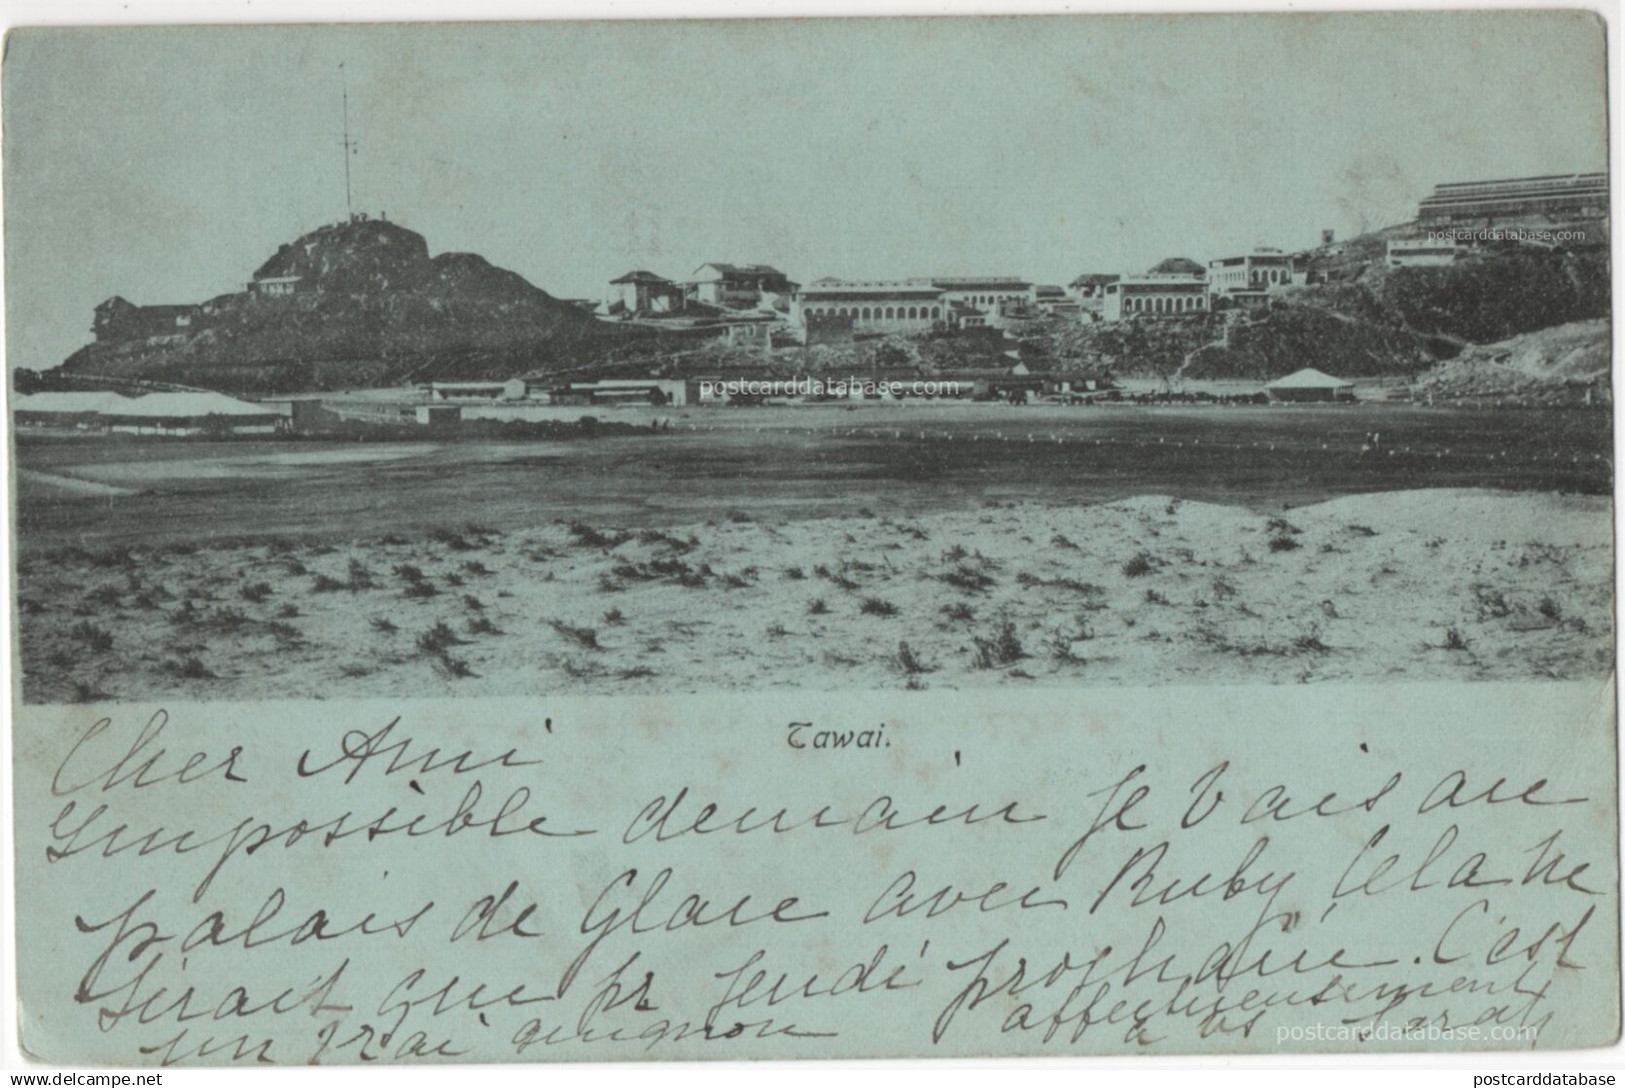 postcarddatabase.com
postcarddatabase.com
Tawai.
Cher Ami
Impossible demain je vais au
palais de Glace avec Ruby Cela ne
serait que pr jeudi prochain. C'est
un vrai guignon affectueusement
à vs Sarah
postcarddatabase.com
delcampe.net
postcarddatabase